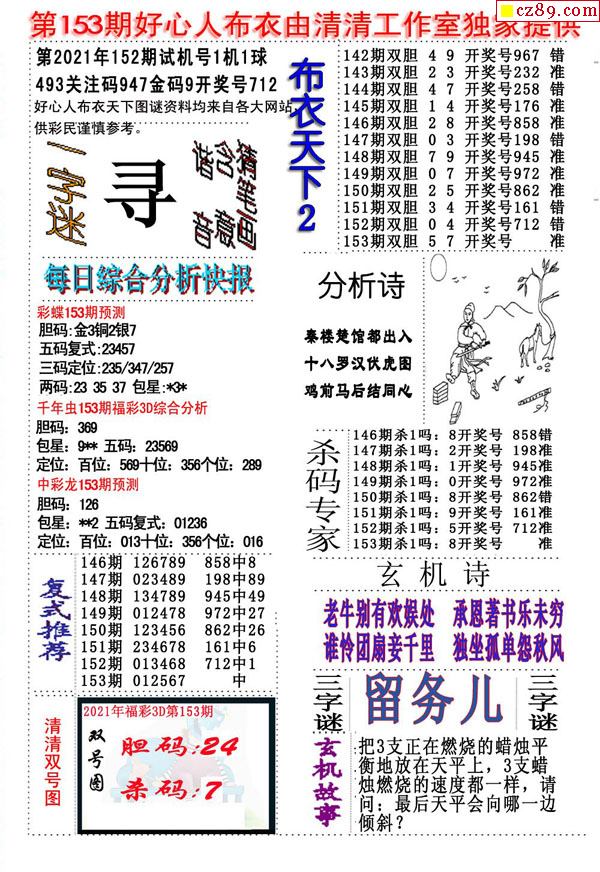 cz89.com
第153期好心人布衣由清清工作室独家提供
第2021年152期试机号1机1球
493关注码947金码9开奖号712
好心人布衣天下图谜资料均来自各大网站,
供彩民谨慎参考。
一字谜
寻
谐音
含意
猜笔画
布衣天下2
142期双胆 4 9 开奖号967 错
143期双胆 2 3 开奖号232 准
144期双胆 4 7 开奖号258 错
145期双胆 1 4 开奖号176 准
146期双胆 2 8 开奖号858 准
147期双胆 0 3 开奖号198 错
148期双胆 7 9 开奖号945 准
149期双胆 0 7 开奖号972 准
150期双胆 2 5 开奖号862 准
151期双胆 3 4 开奖号161 错
152期双胆 0 4 开奖号712 错
153期双胆 5 7 开奖号 准
每日综合分析快报
彩蝶153期预测
胆码:金3铜2银7
五码复式:23457
三码定位:235/347/257
两码: 23 35 37 包星:*3*
千年虫153期福彩3D综合分析
胆码: 369
包星: 9** 五码: 23569
定位: 百位: 569十位: 356个位: 289
中彩龙153期预测
胆码: 126
包星: **2 五码复式: 01236
定位: 百位: 013十位: 356个位: 016
分析诗
秦楼楚馆都出入
十八罗汉伏虎图
鸡前马后结同心
杀码专家
146期杀1吗: 8开奖号 858错
147期杀1吗: 2开奖号 198准
148期杀1吗: 1开奖号 945准
149期杀1吗: 0开奖号 972准
150期杀1吗: 8开奖号 862错
151期杀1吗: 9开奖号 161准
152期杀1吗: 5开奖号 712准
153期杀1吗: 8开奖号 准
复式推荐
146期 126789 858中8
147期 023489 198中89
148期 134789 945中49
149期 012478 972中27
150期 123456 862中26
151期 234678 161中6
152期 013468 712中1
153期 012567 中
玄机诗
老牛别有欢娱处 承恩著书乐未穷
谁怜团扇妾千里 独坐孤单怨秋风
三字谜
留务儿
三字谜
清清双号图
2021年福彩3D第153期
双号图
胆码:24
杀码:7
玄机故事
把3支正在燃烧的蜡烛平
衡地放在天平上，3支蜡
烛燃烧的速度都一样，请
问：最后天平会向哪一边
倾斜？